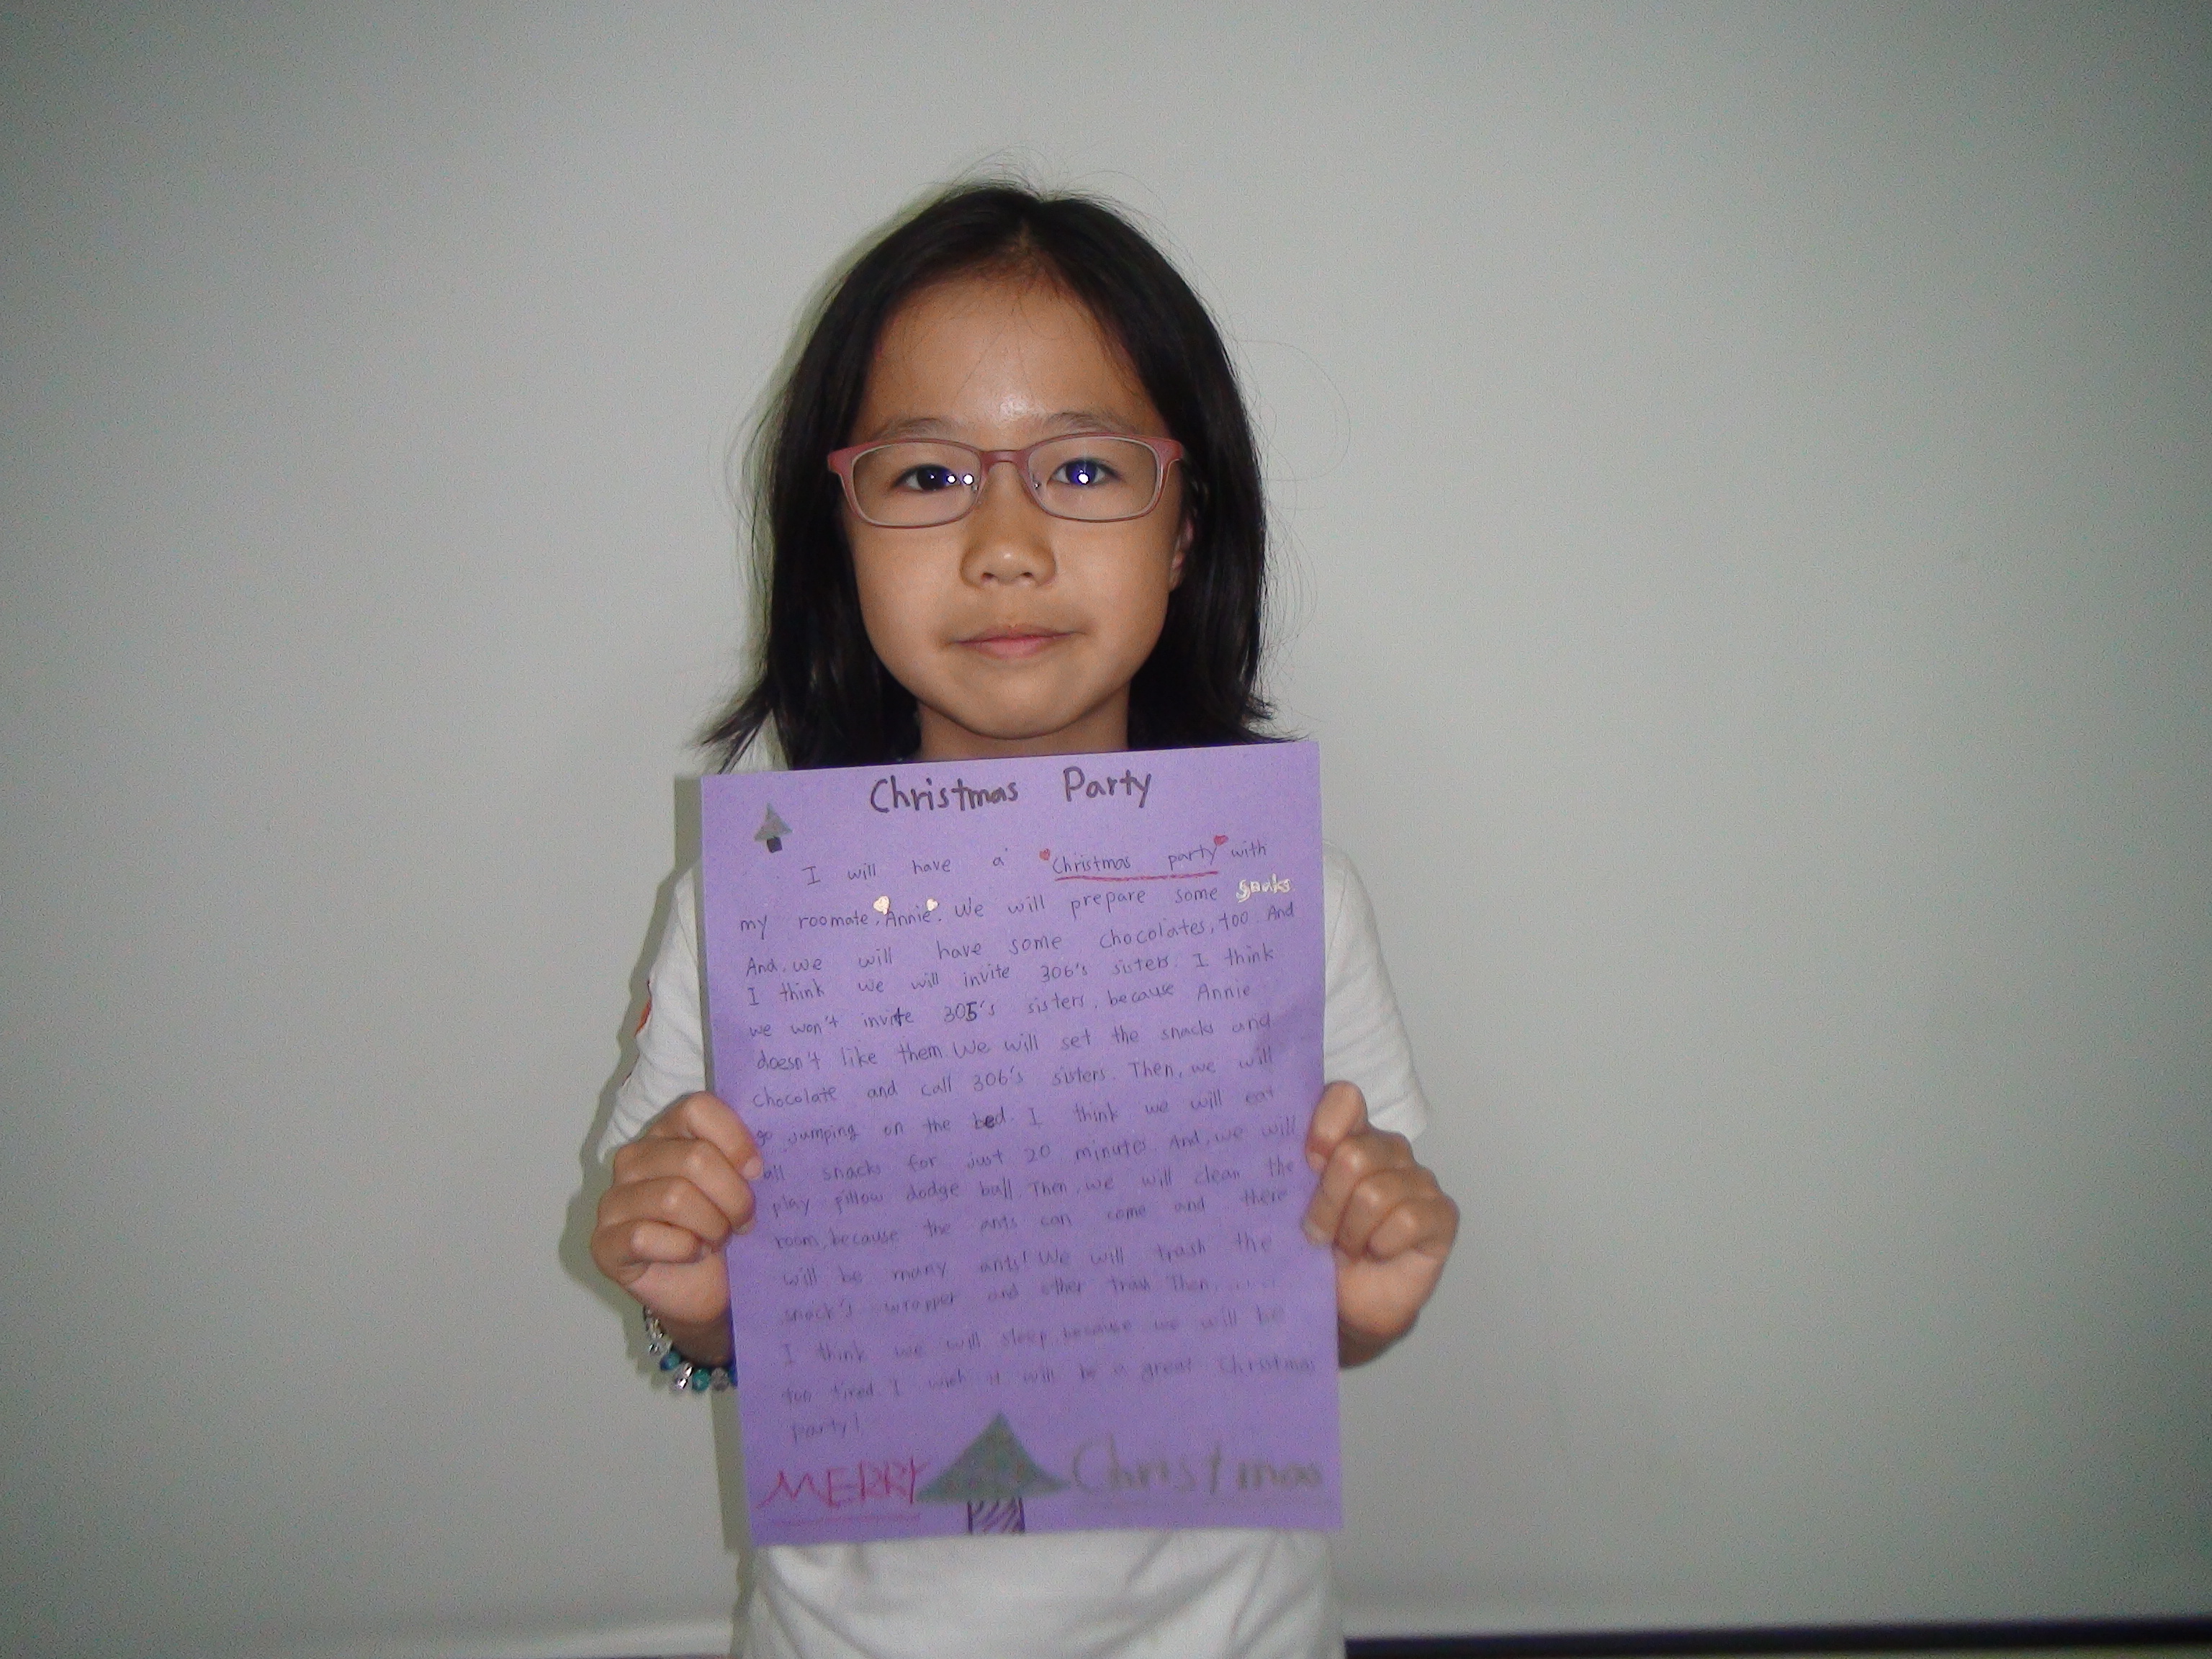 Christmas Party
I will have a Christmas party with
my roomate, Annie. We will prepare some snaks
And, we will have some chocolates, too. And
I think we will invite 306's sisters. I think
we won't invite 305's sisters, because Annie
doesn't like them. We will set the snacks and
chocolate and call 306's sisters. Then, we will
go jumping on the bed. I think we will eat
all snacks for just 20 minutes. And, we will
play pillow dodge ball. Then, we will clean the
room, because the ants can come and there
will be many ants! We will trash the
snack's wrapper and other trash. Then, ......
I think we will sleep, because we will be
too tired. I wish it will be a great Christmas
party!
MERRY Christmas